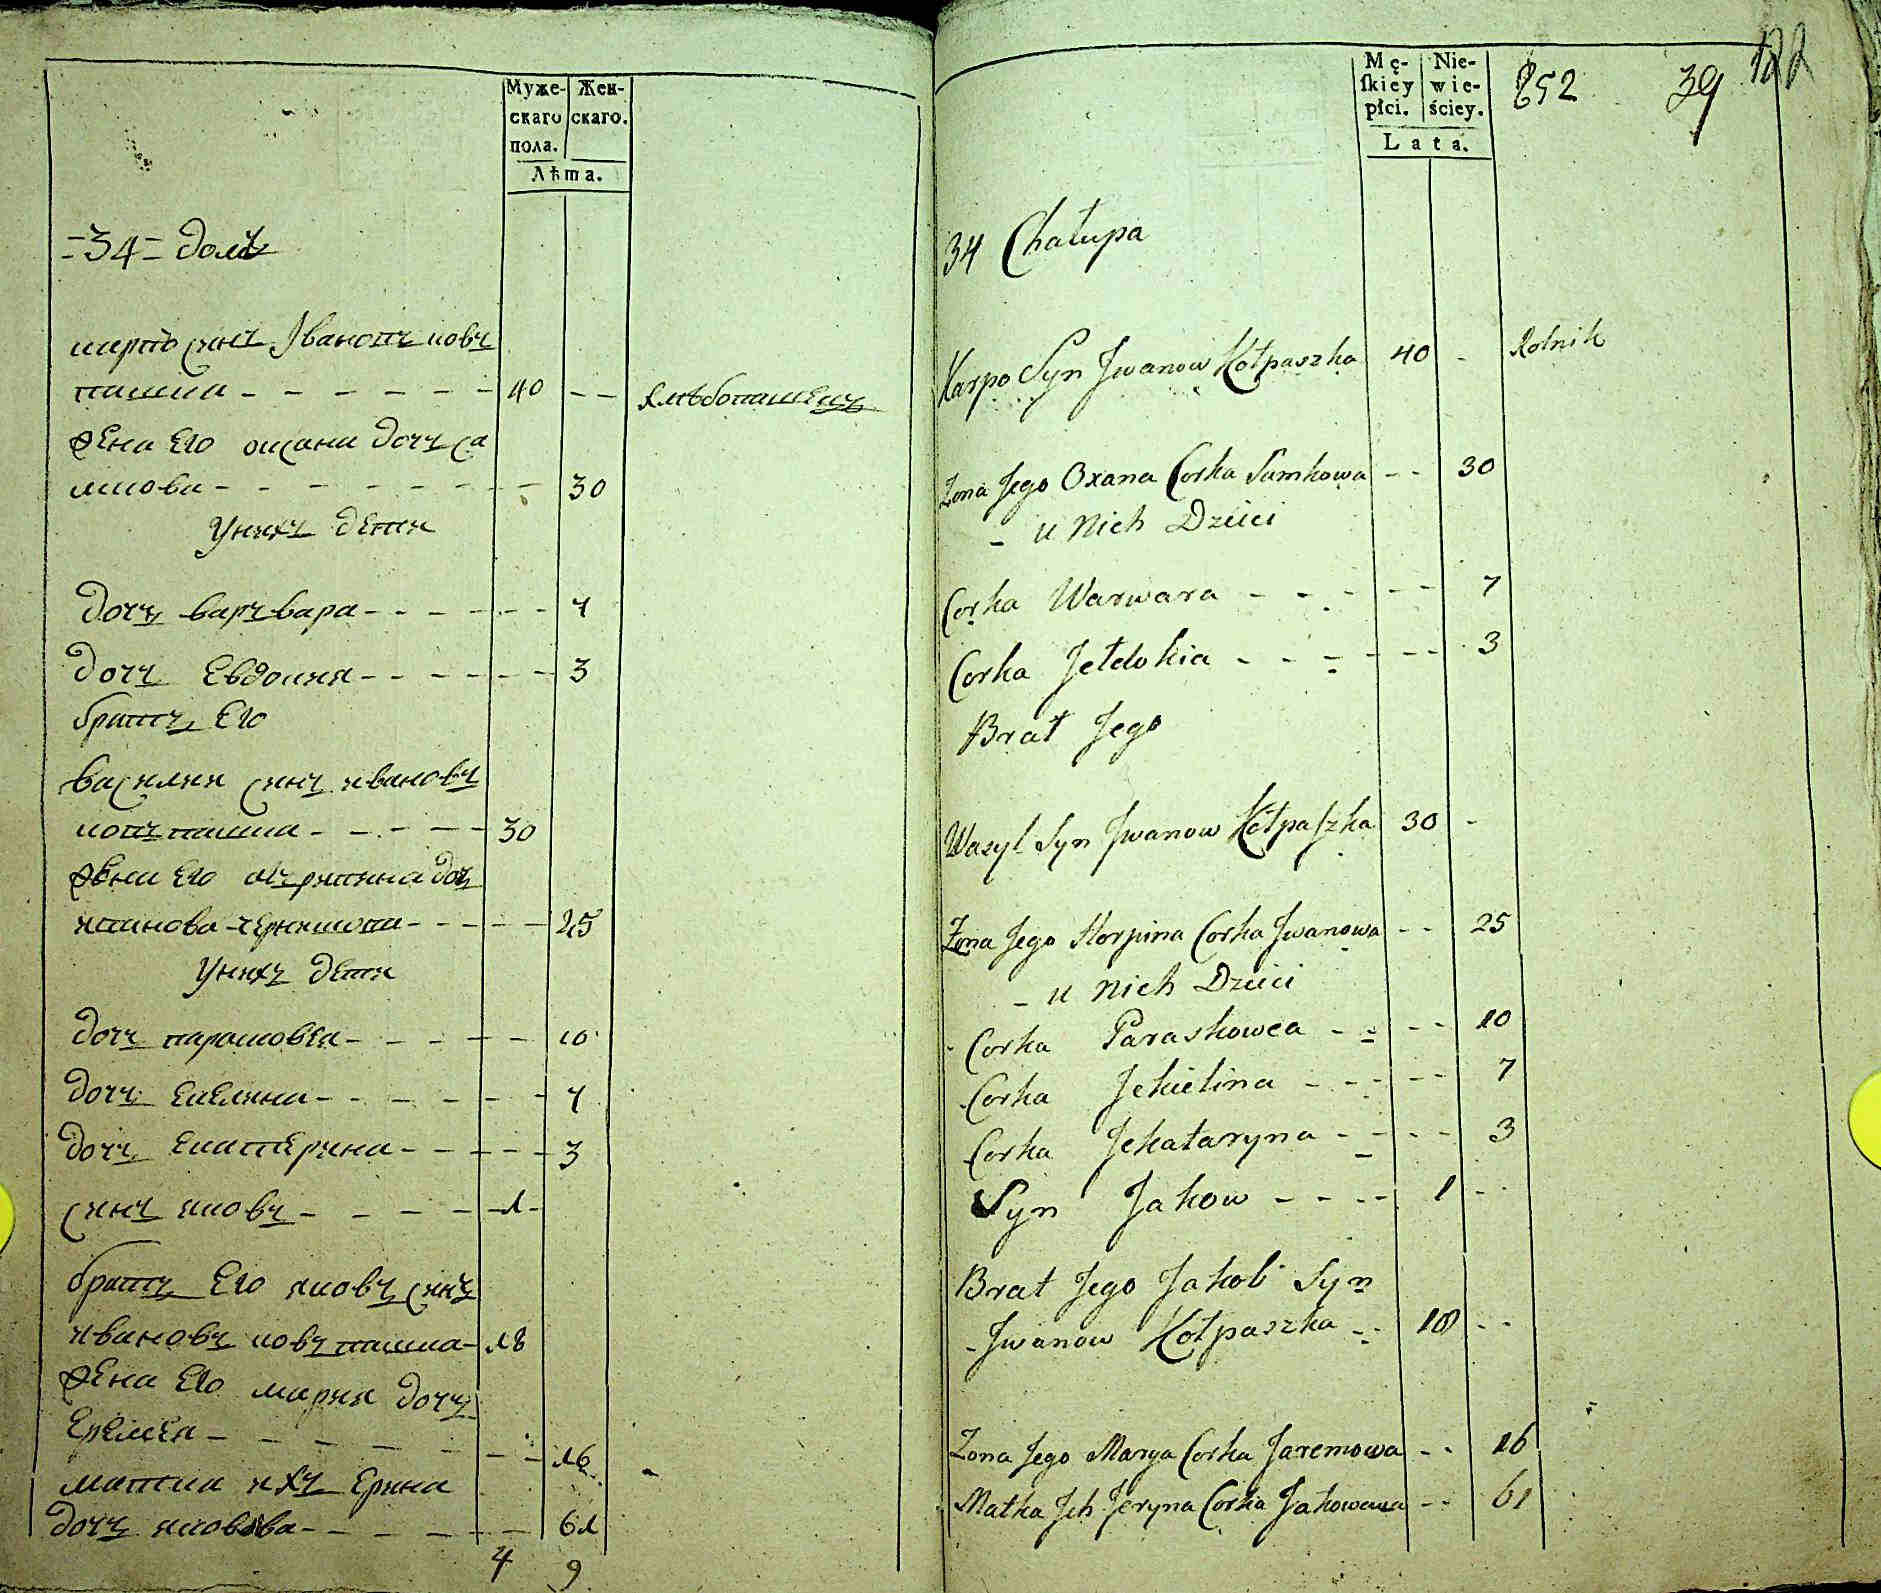 Муже-
скаго
пола.
Жен-
скаго.
Лѣта.
=34= домъ
карпо синъ Iванопъ ковъ
пашка - - - - - - 40 - - хлѣбопашецъ
жена его оксана дочъ са
мкова - - - - - - - 30
унихъ дети
дочъ варъвара - - - - - - 7
дочъ Евдокия - - - - - - 3
братъ Его
василий синъ ивановъ
копъпашка - - - - - 30
жена Его
иванова - - - - - 25
унихъ дети
дочъ парасковея - - - - - - 10
дочъ Екелина - - - - - - 7
дочъ Екаптерина - - - - - 3
синъ яковъ - - - - - 1 -
братъ Его яковъ синъ
ивановъ ковъпашка - 18
жена Его мария дочъ
Еремея - - - - - - - - 16
матка ихъ Ерина
дочъ яковова - - - - - - 61
4 9
Mę-
ſkiey
płci.
Nie-
wie-
ściey.
Lata.
252 39 122
34 Chałupa
Karpo Syn Jwanow Kołpaszka 40 - Rolnik
Zona Jego Oxana Corka Samkowa - - 30
- u Nich Dzieci
Corka Warwara - - - - - 7
Corka Jełdokia - - - - - - 3
Brat Jego
Wasyl Syn Jwanow Kołpaſzka 30 -
Zona Jego Horpina Corka Jwanowa - - 25
- u Nich Dzieci
Corka Paraskowea - - - - 10
Corka Jekielina - - - - - 7
Corka Jekataryna - - - - 3
Syn Jakow - - - - 1 - -
Brat Jego Jakob Syn
- Jwanow Kołpaszka - - 18 - -
Zona Jego Marya Corka Jaremowa - - 16
Matka Jch Jeryna Corka Jakowowa - - 61